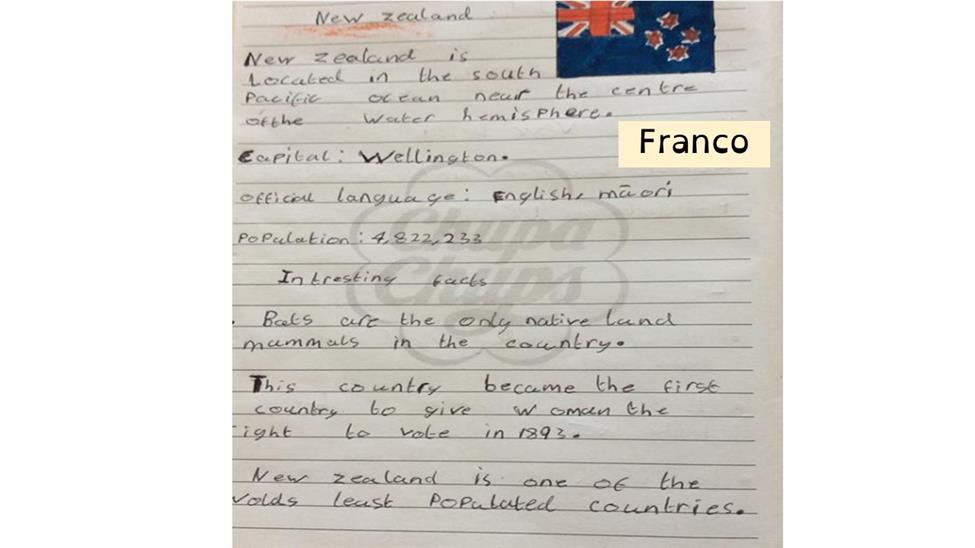 New zealand
New zealand is
Located in the south
Pacific ocean near the centre
ofthe water hemisphere.
Franco
Capital: Wellington.
official language: English, māori
Population: 4,822,233
Chupa
Chups
Intresting facts
. Bats are the only native land
mammals in the country.
This country became the first
country to give woman the
ight to vote in 1893.
New zealand is one of the
volds least Populated countries.